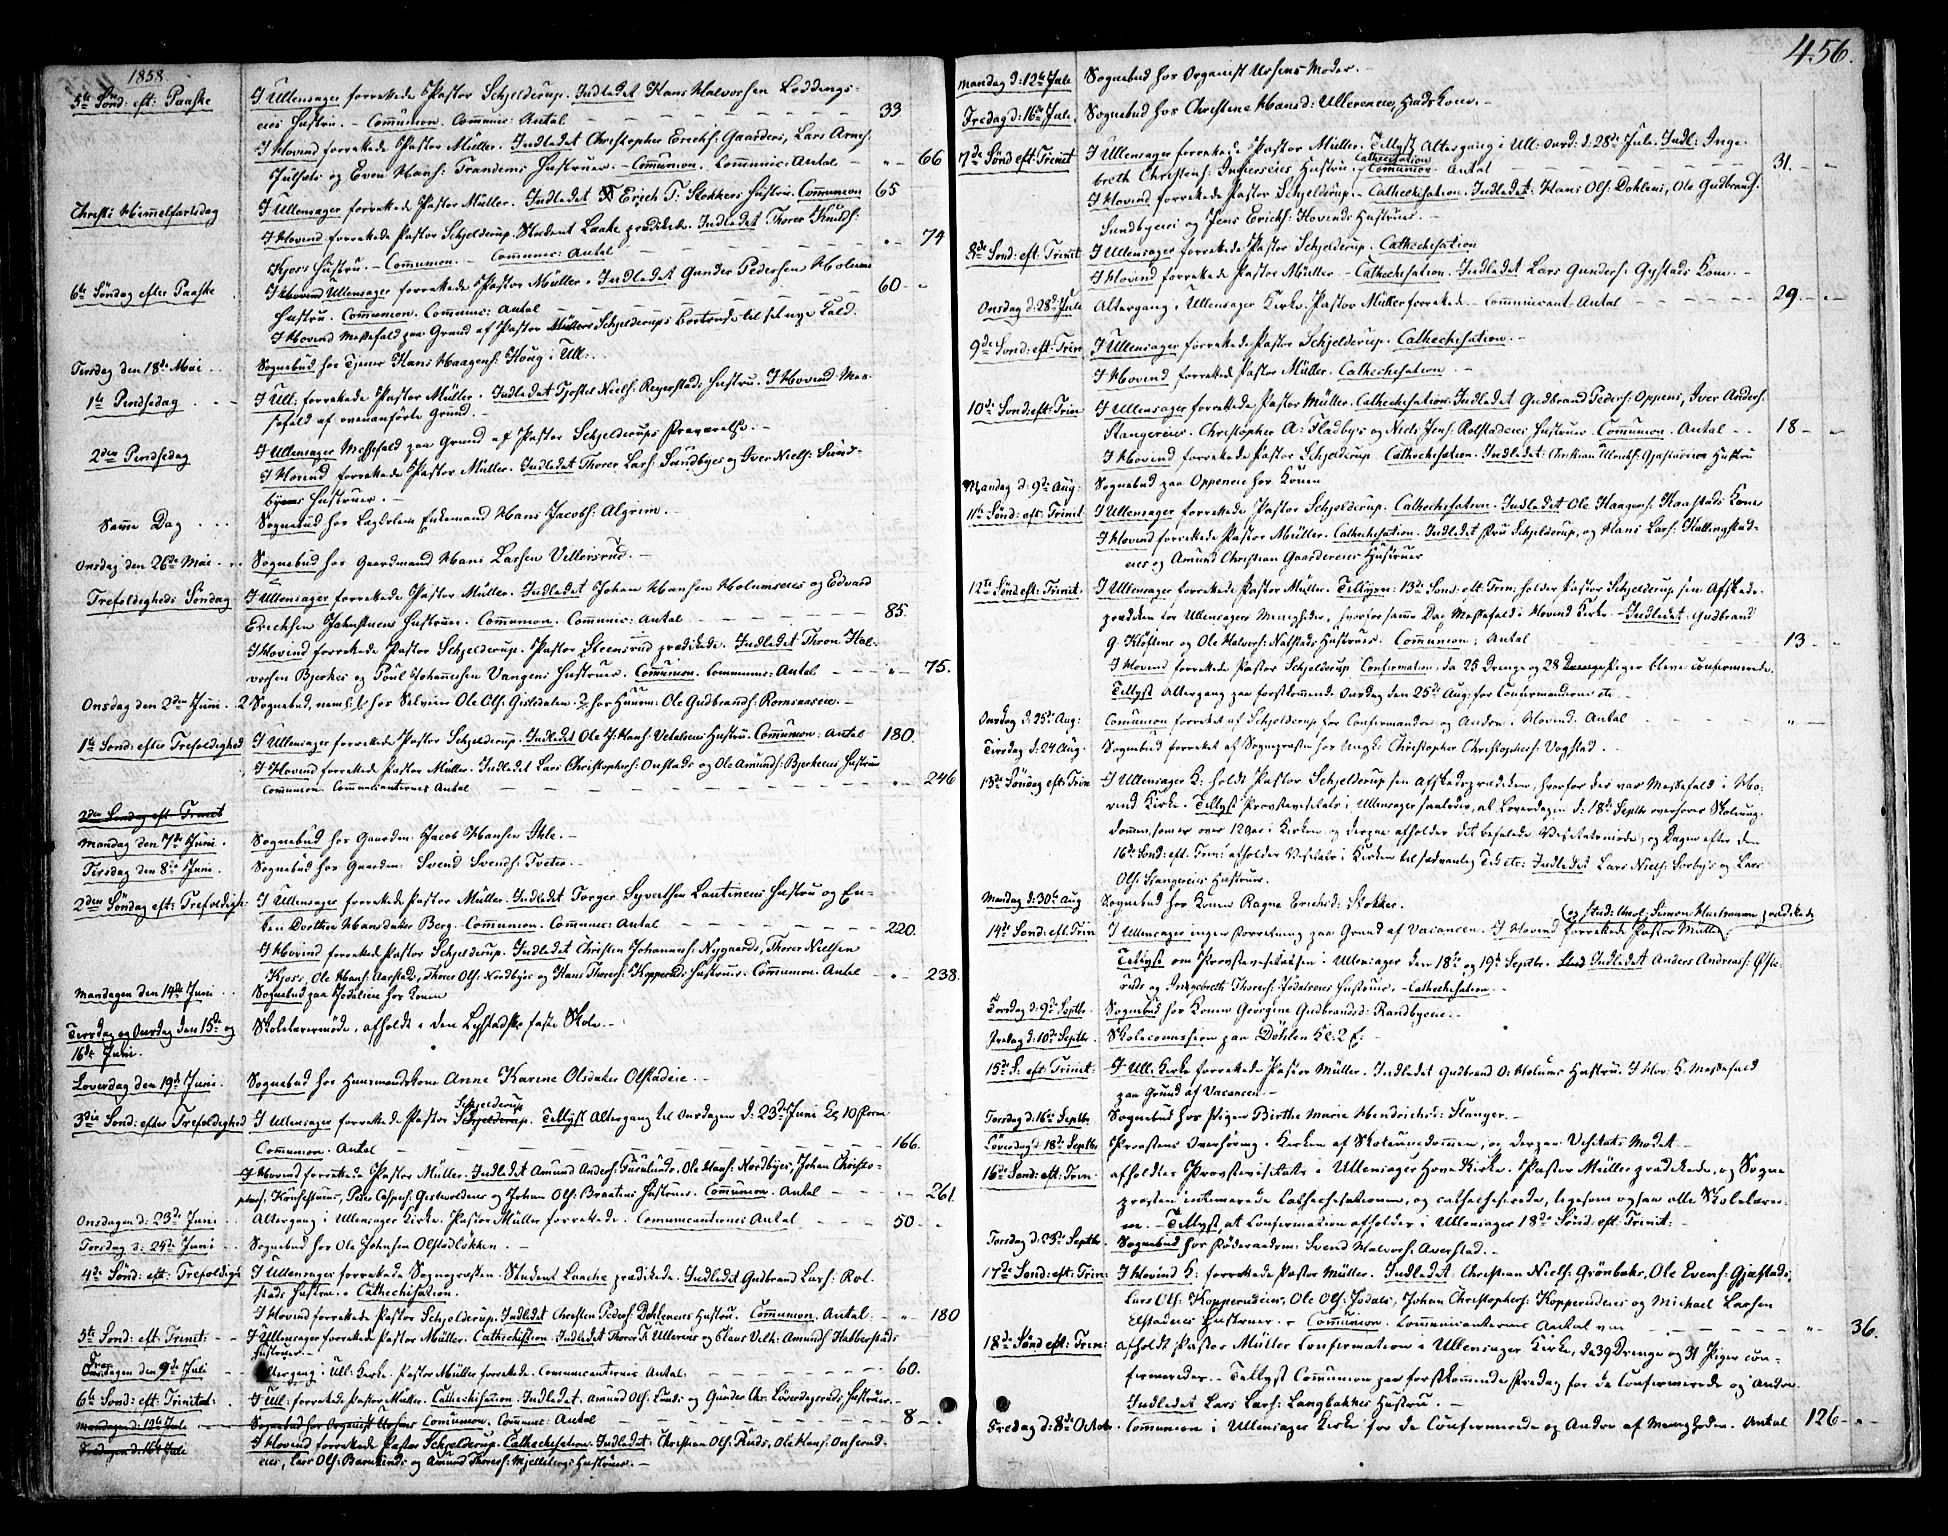 1858.
5te Sønd: eft: Paaske
I Ullensager forrettede Pastor Schjelderup. Indledet Hans Halvorsen Loddings-
eies Hustru. – Communion. Communic: Antal 33
I Hovind forrettede Pastor Müller. Indledet Christopher Erichs: Gaarders, Lars Arnes:
Julsets og Even Hans: Trandems Hustruer. – Communion. Communic: Antal 66
Christi Himmelfartsdag
I Ullensager forrettede Pastor Müller. Indledet Erich T: Stokkers Hustru. Communion 65
I Hovind forrettede Pastor Schjelderup. Student Laake prædikede. Indledet Thorer Knuds:
Kjoss Hustru. – Communion. – Communic: Antal 74
6te Søndag efter Paaske
I Ullensager forrettede Pastor Müller. Indledet Gunder Pedersen Holums
Hustru. Communion. Communic: Antal 60
I Hovind Messefald paa Grund af Pastor Schjelderups Bortreise til sit nye Kald.
Tirsdag den 18de Mai
Sognebud hos Tjener Hans Haagens: Houg i Ull:
1te Pindsedag
I Ull: forrettede Pastor Müller. Indledet Tjostel Niels: Ragerstads Hustru. I Hovind Mes-
sefald af ovenanførte Grund.
2den Pindsedag
I Ullensager Messefald paa Grund af Pastor Schjelderups Fraværelse. –
I Hovind forrettede Pastor Müller. Indledet Thorer Lars: Sundbyes og Iver Niels: Sund-
byes Hustruer. –
Samme Dag
Sognebud hos Lægdslem Enkemand Hans Jacobs: Algrim. –
Onsdag den 26de Mai
Sognebud hos Gaardmand Hans Larsen Vellersrud. –
Trefoldigheds Søndag
I Ullensager forrettede Pastor Müller. Indledet Johan Hansen Holumseies og Edvard
Erichsen Jahnstuens Hustruer. Communion. Communic: Antal 85.
I Hovind forrettede Pastor Schjelderup. Pastor Steensrud prædikede. Indledet Thron Hal-
vorsen Bjerkes og Poul Johannesen Vangens Hustruer. Communion. Communic: Antal 75.
Onsdag den 2den Juni
2 Sognebud, neml: 1) hos Selveier Ole Ols: Gisledalen. 2) hos Huusm: Ole Gudbrands: Romsaaseie. –
1te Sønd: efter Trefoldighed
I Ullensager forrettede Pastor Schjelderup. Indledet Ole J. Hans: Vetalseies Hustru. Communion: Antal 180.
I Hovind forrettede Pastor Müller. Indledet Lars Christophers: Onstads og Ole Amunds: Bjerkeeies Hustruer
Communion. Communicanternes Antal 246
2den Søndag eft: Trinit
Mandag den 7de Juni
Sognebud hos Gaardm: Jacob Hansen Ihle. –
Tirsdag den 8de Juni
Sognebud hos Gaardm: Svend Svends: Tveter. –
2den Søndag eft: Trefoldigh:
I Ullensager forrettede Pastor Müller. Indledet Torger Syversen Lautineies Hustru og En-
ken Dorthea Hansdatter Berg. Communion. Communic: Antal 220.
I Hovind forrettede Pastor Schjelderup. Indledet Christen Johannes: Nygaards, Thorer Nielsen
Kjoss, Ole Hans: Aurstads, Thore Ols: Nordbyes og Hans Thores: Kopperuds Hustruer. Communion. Antal 238.
Mandagen den 14de Juni
Sognebud paa Jødalseie hos Konen
Tirsdag og Onsdag den 15de og
16de Juni.
Skolelærermøde, afholdt i den Lystadske faste Skole. –
Løverdag den 19de Juni
Sognebud hos Huusmandskone Anne Karine Olsdatter Olstadeie. –
3die Sønd: efter Trefoldighed
I Ullensager forrettede Pastor Schjelderup. Tillyst Altergang til Onsdagen d: 23de Juni Kl 10 Form
Communion. Antal 166.
I Hovind forrettede Pastor Müller. Indledet Amund Anders: Furulunds, Ole Hans: Nordbyes, Johan Christo-
phers: Communion. Antal 261.
Onsdagen d: 23de Juni
Altergang i Ullensager Kirke. Pastor Müller forrettede. Communicanternes Antal 50
Torsdag d: 24de Juni
Sognebud hos Ole Johnsen Olstadløkken. –
4de Sønd: eft: Trefoldigh:
I Ullensager forrettede Sognepræsten. Student Laache prædikede. Indledet Gudbrand Lars: Rol-
stads Hustru. Cathechisation.
I Hovind forrettede Pastor Schjelderup. Indledet Christen Peders: Dohleneies Hustru. Communion. Antal 180
5te Sønd: eft: Trinit:
I Ullensager forrettede Pastor Müller. Cathechisation. Indledet Thorer K: Ullereies og Claus Velh: Amunds: Halberstads
Hustruer. –
Fredagen den 9de Juli
Altergang i Ull: Kirke. Pastor Müller forrettede. Communicanternes Antal 60.
6te Sønd: eft: Trinitat:
I Ull: forrettede Pastor Müller. Cathechisation. Indledet: Amund Ols: Lunds og Gunder Chr: Løverdagsruds Hustruer. –
Mandagen d: 12te Juli
Sognebud hos Organist Ursens Communion. Communic: Antal 8
Fredagen d: 16de Juli
I Hovind forrettede Pastor Schjelderup. Cathechisation. Indledet: Christian Ols: Ruds, Ole Hans: Onserud-
eies, Lars Ols: Barulunds og Amund Thores: Mjelteborgs Hustruer. –
456.
Mandag d: 12te Jule
Sognebud hos Organist Ursens Moder. –
Fredag d: 16de Jule
Sognebud hos Christine Hansd: Ullereneie, Huuskone. –
7de Sønd eft: Trinit
I Ullensager forrettede Pastor Müller. Tillyst Altergang i Ull: Onsd: d: 28de Jule. Indl: Inge-
breth Christens: Hustru. Cathechisation Communion Antal 31.
I Hovind forrettede Pastor Schjelderup. – Cathechisation. Indledet: Hans Ols: Dohleneies, Ole Gudbrands:
Sundbyeeie og Jens Erichs: Hovinds Hustruer. –
8de Sønd: eft: Trinit
I Ullensager forrettede Pastor Schjelderup. Cathechisation
I Hovind forrettede Pastor Müller – Cathechisation. Indledet Lars Gunders: Gystads Kone. –
Onsdag d: 28de Jule
Altergang i Ullensager Kirke. Pastor Müller forrettede. – Communicant: Antal 29.
9de Sønd: eft: Trin
I Ullensager forrettede Pastor Schjelderup. Cathechisation. –
I Hovind forrettede Pastor Müller. Cathechisation. –
10de Sønd: eft: Trin
I Ullensager forrettede Pastor Müller. Cathechisation. Indledet Gudbrand Peders: Oppens, Iver Anders:
Stangereies. Christopher A: Fladbyes og Niels Jens: Rolstadeies Hustruer. Communion. Antal 18
I Hovind forrettede Pastor Schjelderup. Cathechisation. Indledet: Christian Ulrichs: Gjestadeies Hustru
Mandag d: 9de Aug:
Sognebud paa Oppeneie hos Konen
11te Sønd: eft: Trinit
I Ullensager forrettede Pastor Schjelderup. Cathechisation. Indledet Ole Haagens: Haastads Kone
I Hovind forrettede Pastor Müller. Cathechisation. Indledet Fru Schjelderup, og Hans Lars: Kullingstad-
eies og Amund Christian Gaardereies Hustruer
12te Sønd eft: Trinit.
I Ullensager forrettede Pastor Müller. Tillyst: 13de Sønd: eft: Trin: holder Pastor Schjelderup sin Afskeds-
prædiken for Ullensagers Menighed, hvorfor samme Dag Messefald i Hovind Kirke. – Indledet: Gudbrand
G. Kløfteneies og Ole Halvors: Nalstads Hustruer. Communion: Antal 13
I Hovind forrettede Pastor Schjelderup Confirmation, da 25 Drenge og 28 Piger bleve confirmerede
Tillyst Altergang paa førstkommende Onsdag den 25de Aug: for Confirmanderne etc
Onsdag d: 25de Aug:
Communion forrettet af Schjelderup for Confirmander og Andre i Hovind. Antal
Tirsdag d: 24 Aug
Sognebud forrettet af Sognepræsten hos Ungk: Christopher Christophers: Vogstad. –
13de Søndag eft: Trin
I Ullensager K: holdt Pastor Schjelderup sin Afskedsprædiken, hvorfor der var Messefald i Ho-
vind Kirke. Tillyst Provstevisitats i Ullensager saaledes, at Løverdagen d: 18de Septbr overhøres Skoleung-
dommen, som er over 12 Aar i Kirken og derpaa afholdes det befalede Visitatsmøde, og Dagen efter den
16de Sønd: eft. Trin: afholdes Visitats i Kirken til sædvanlig Tid etc: Indledet Lars Niels: Sørbyes og Lars
Ols: Stangereies Hustruer.
Mandag d: 30te Aug
Sognebud hos Konen Ragne Erichsd: Stokker.
(og Stud: theol: Simon prædikede)
14de Sønd: eft. Trin
I Ullensager ingen Forretning paa Grund af Vacancen. I Hovind forrettede Pastor Müller
Tillyst om Provstevisitatsen i Ullensager den 18de og 19de Septbr. Indledet Anders Andreas:
og Ingebreth Thores: Jodalseies Hustruer. – Cathechisation. –
Torsdag d: 9de Septbr
Sognebud hos Konen Georgine Gudbrandsd: Randbyeeie. –
Fredag d: 10de Septbr
Skolecommission paa Döhlen Kl: 2 E:
15de S. eft: Trinit:
I Ull: Kirke forrettede Pastor Müller. Indledet Gudbrand O: Holums Hustru. I Hov: K. Messefald
paa Grund af Vacancen. –
Torsdag d: 16de Septbr
Sognebud hos Pigen Birthe Marie Hendrichsd: Stanger. –
Löverdag d: 18de Septbr
Provstens Overhøring i Kirken af Skoleungdommen, og derpaa Visitats Mødet –
16de Sønd: eft: Trin
afholdtes Provstevisitats i Ullensager Hoved Kirke. Pastor Müller prædikede, og Sogne-
præsten intimerede Cathechisationen, og cathechiserede, ligesom ogsaa alle Skolelærer-
ne. – Tillyst at Confirmation afholdes i Ullensager 18de Sønd: eft: Trinit:
Torsdag d: 23de Septbr
Sognebud hos Føderaadsm: Svend Halvors: Averstad. –
17de Sønd: eft: Trin:
I Hovind K: forrettede Pastor Müller. Indledet: Christian Niels: Grönbaks, Ole Evens: Gjæstads,
Lars Ols: Kopperudeies, Ole Ols: Jodals, Johan Christophers: Kopperudeies og Michael Larsen
Elstadeies Hustruer. – Communion. Communicanternes Antal var 36.
18de Sønd eft: Trin:
afholdt Pastor Müller Confirmation i Ullensager Kirke, da 39 Drenge og 31 Piger con-
firmeredes. – Tillyst Communion paa førstkommende Fredag for de Confirmerede og Andre.
Indledet Lars Lars: Langbakkes Hustru. –
Fredag d: 8de Octobr
Communion i Ullensager Kirke for de Confirmerede og Andre af Menigheden. Antal 126